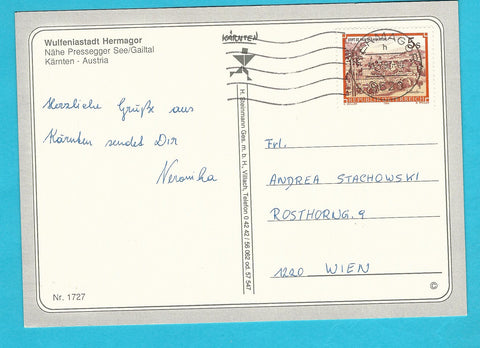 Wulfeniastadt Hermagor
Nähe Pressegger See/Gailtal
Kärnten - Austria
KÄRNTEN
5 S
REPUBLIK ÖSTERREICH
Herzliche Grüße aus
Kärnten sendet Dir
Veronika
H. Steinmann Ges. m. b. H., Villach, Telefon 0 42 42 / 56 062 od. 57 547
Frl.
ANDREA STACHOWSKI
ROSTHORNG. 9
1220 WIEN
Nr. 1727
©